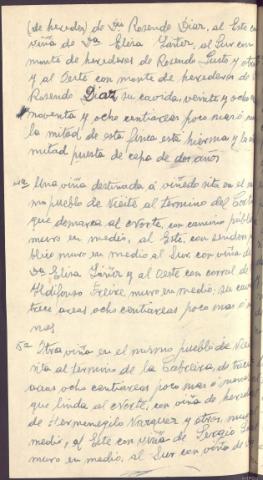 (de herederos) de Don Rosendo Diaz, al Este con
viña de Dª Elisa, al Sur con
monte de herederos de Rosendo Justo y otros
y al Oeste con monte de herederos de
Rosendo Diaz, su cavida, veinte y ocho
noventa y ocho centiareas poco más ó
la mitad de esta finca está hierma y la
mitad puesta de cepa de dos años
4ª Una viña destinada á viñedo sita en el
mo pueblo de al termino del
que demarca al Norte, con camino público
muro en medio, al Este, con sendero
blico muro en medio al Sur con viña de
Dª Elisa y al Oeste con corral de
Ildifonso Freire muro en medio, su
trece areas ocho centiareas poco mas ó
nos
5ª Otra viña en el mismo pueblo de
sita al termino de la Cabreira, de trece
areas ocho centiareas poco mas ó menos
que linda al Norte, con viña de
de Hermenegilo Vazquez y otros, muro
medio, al Este con viña de Sergio
muro en medio, al Sur con viña de